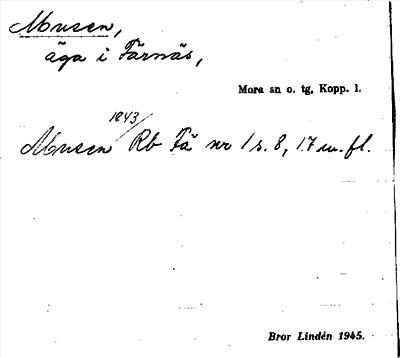 Musen,
äga i Färnäs,
Mora sn o. tg, Kopp. l.
1843/
Musen Rb Fä nr 1 s. 8, 17 m. fl.
Bror Lindén 1945.